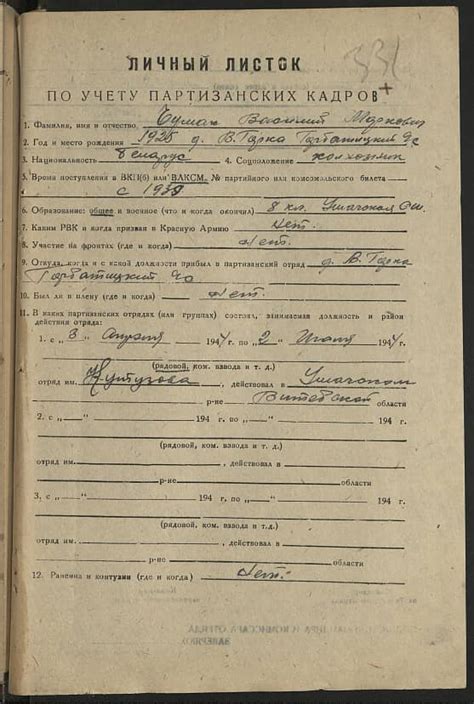 331
ЛИЧНЫЙ ЛИСТОК
ПО УЧЕТУ ПАРТИЗАНСКИХ КАДРОВ +
1. Фамилия, имя и отчество Василий Маркович
2. Год и место рождения д. В. Горка
3. Национальность Беларус 4. Соцположение колхозник
5. Время поступления в ВКП(б) или ВЛКСМ. № партийного или комсомольского билета
с 1939
6. Образование: общее и военное (что и когда окончил) 8 кл. Ушачская СШ.
7. Каким РВК и когда призван в Красную Армию Нет.
8. Участие на фронтах (где и когда) Нет.
9. Откуда, когда и с какой должности прибыл в партизанский отряд д. В. Горка
10. Был ли в плену (где и когда) Нет.
11. В каких партизанских отрядах (или группах) состоял, занимаемая должность и район
действия отряда:
1. с „3“ Апреля 1944 г. по „2“ 1944 г.
(рядовой, ком. взвода и т. д.)
отряд им. Кутузова, действовал в Ушачском
Витебской области
2. с „ “ 194 г. по „ “ 194 г.
(рядовой, ком. взвода и т. д.)
отряд им. , действовал в
р-не области
3. с „ “ 194 г. по „ “ 194 г.
(рядовой, ком. взвода и т.д.)
отряд им. , действовал в
р-не области
12. Ранения и контузии (где и когда) Нет.